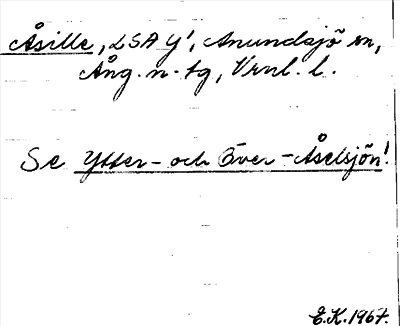 Åsille, LSA Y', Anundsjö sn,
Ång. n. tg, Vrnl. l.
Se Ytter- och Över-Åselsjön!
E.K. 1967.